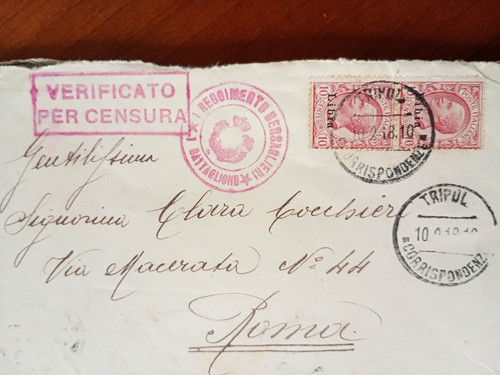 VERIFICATO
PER CENSURA
REGGIMENTO BERSAGLIERI
BATTAGLIONE
Libia
Libia
10
10
TRIPOLI
CORRISPONDENZE
TRIPOLI
10 2 18
CORRISPONDENZ
Gentilissima
Signorina Clara
Via Macerata N° 44
Roma